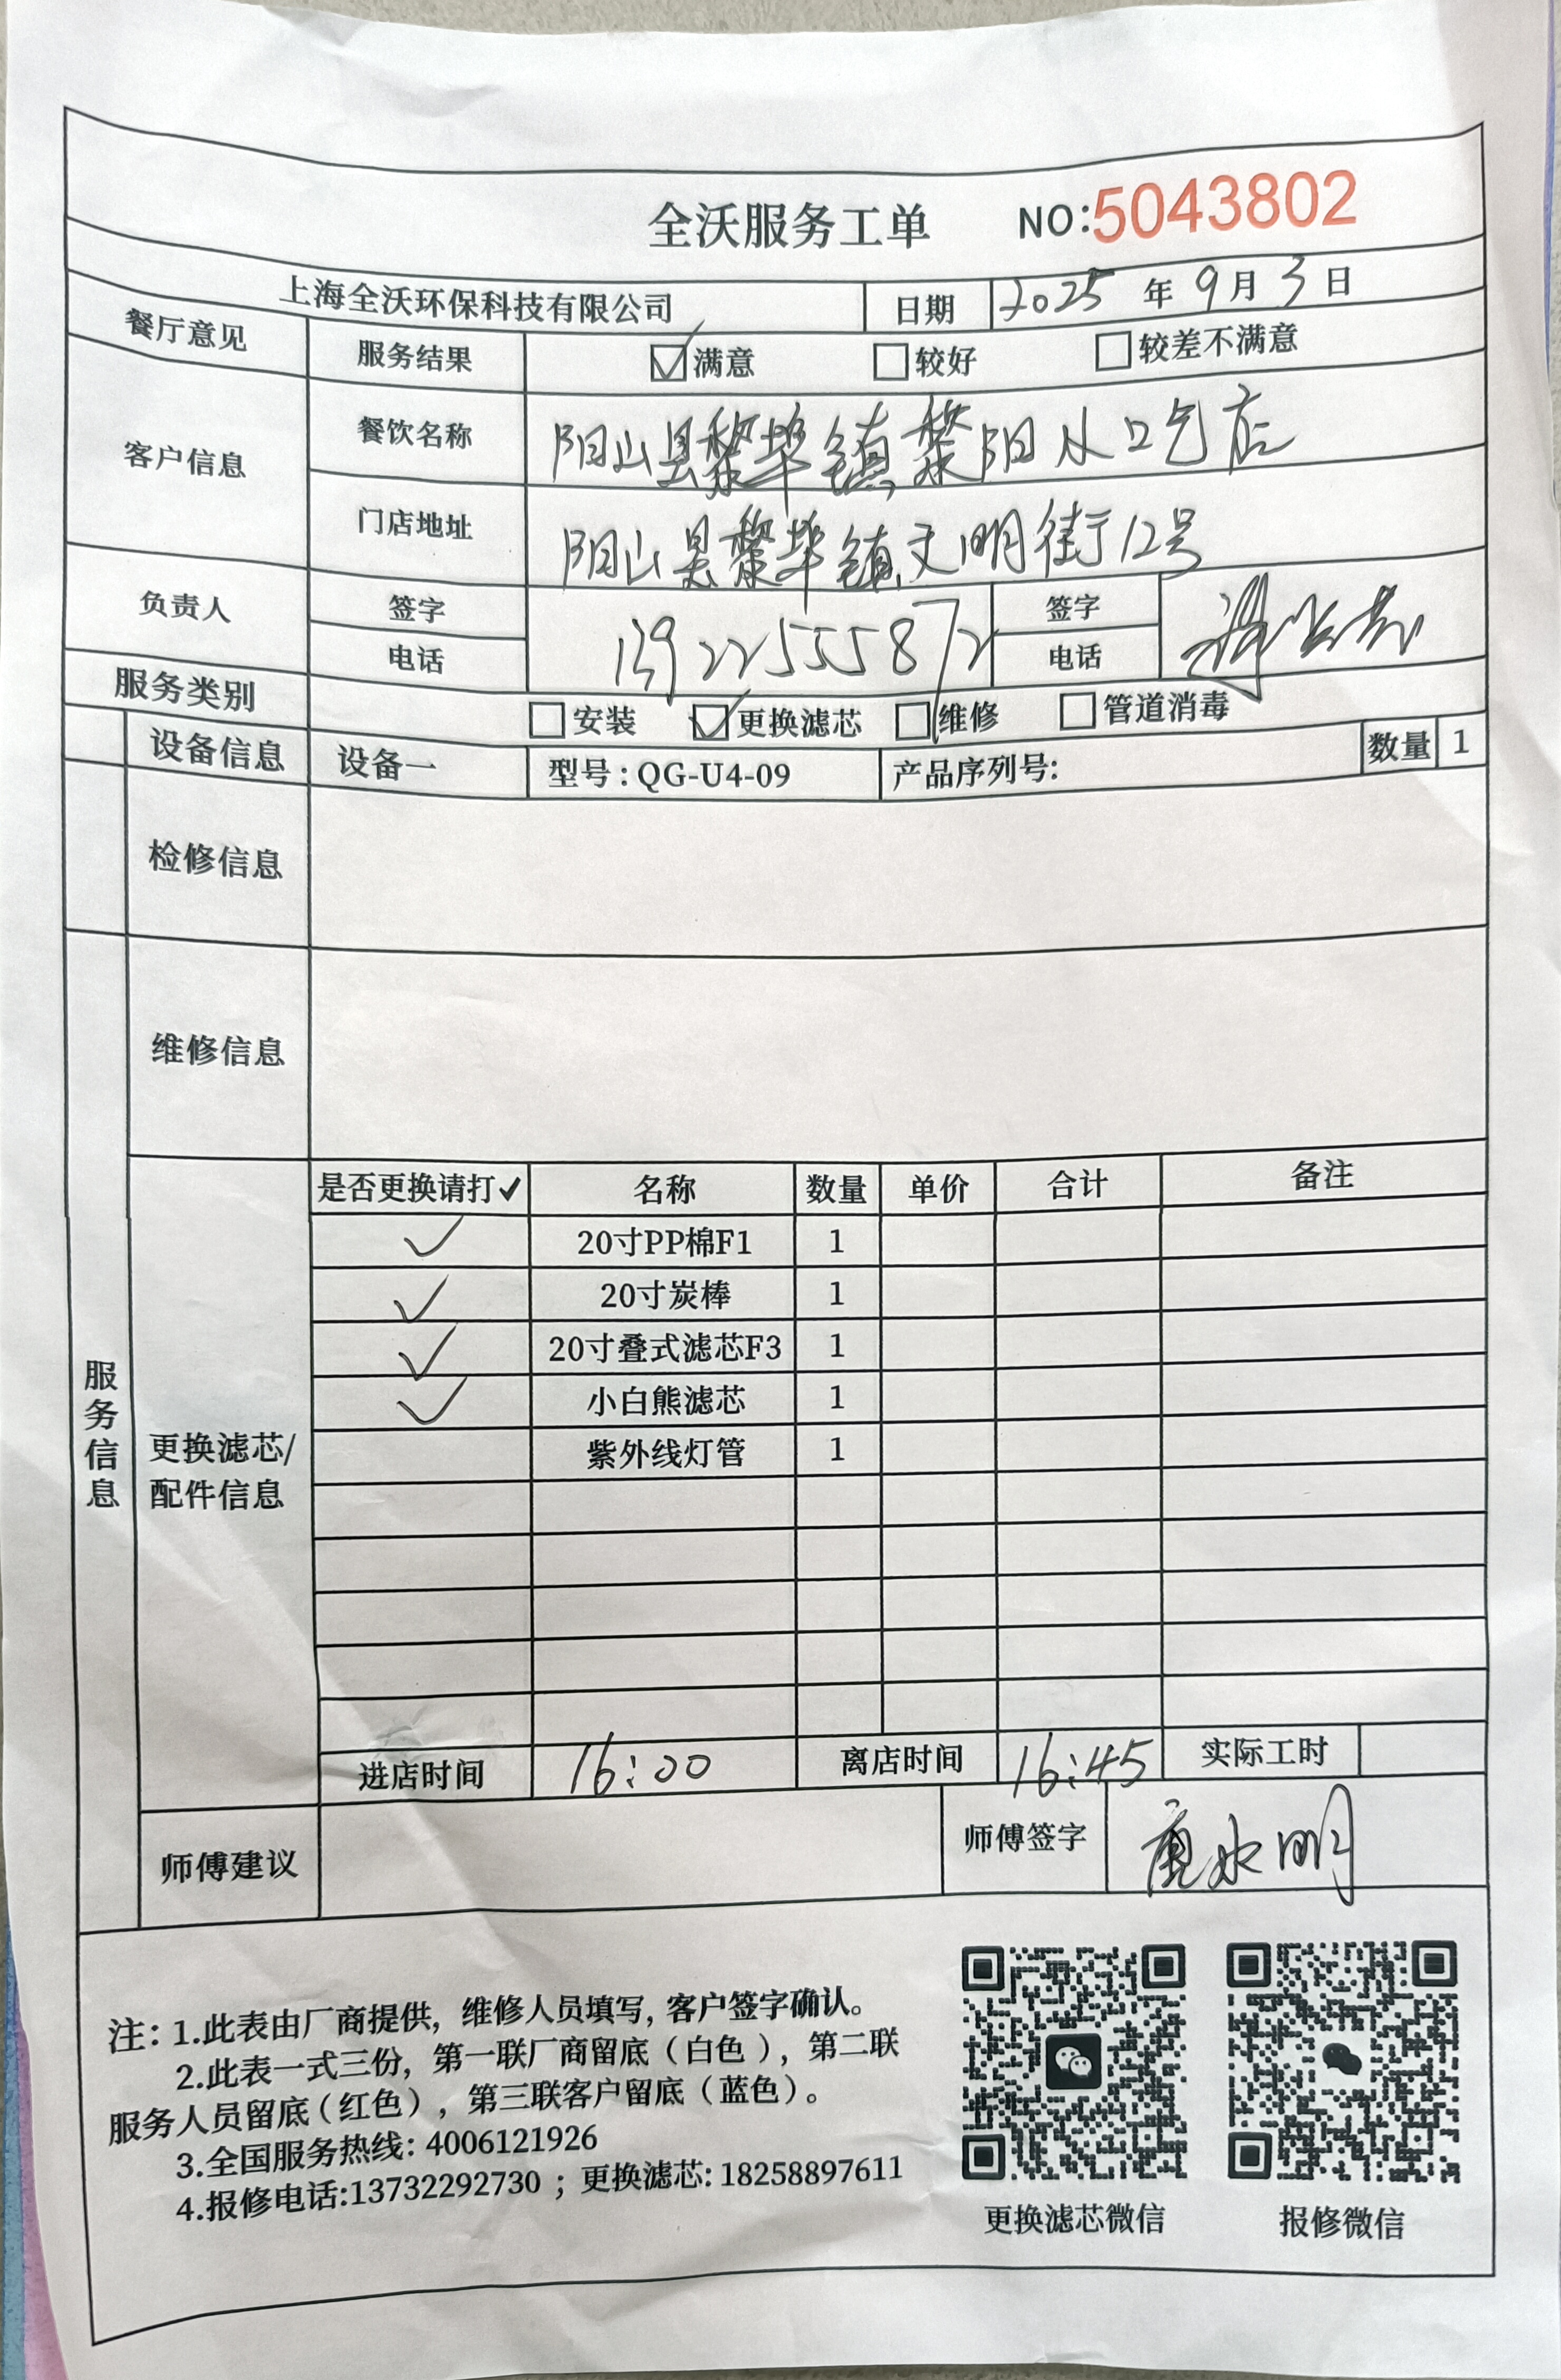 全沃服务工单 NO:5043802
上海全沃环保科技有限公司 日期 2025 年 9 月 3 日
餐厅意见 服务结果 满意 较好 较差不满意
客户信息 餐饮名称 阳山县黎埠镇黎阳小吃店
门店地址 阳山县黎埠镇文明街12号
负责人 签字 签字
电话 13922555872 电话
服务类别 安装 更换滤芯 维修 管道消毒
设备信息 设备一 型号:QG-U4-09 产品序列号: 数量 1
检修信息
维修信息
服务信息
更换滤芯/
配件信息
是否更换请打✓ 名称 数量 单价 合计 备注
✓ 20寸PP棉F1 1
✓ 20寸炭棒 1
✓ 20寸叠式滤芯F3 1
✓ 小白熊滤芯 1
紫外线灯管 1
进店时间 16:00 离店时间 16:45 实际工时
师傅建议 师傅签字
注: 1.此表由厂商提供, 维修人员填写, 客户签字确认。
2.此表一式三份, 第一联厂商留底(白色), 第二联
服务人员留底(红色), 第三联客户留底(蓝色)。
3.全国服务热线: 4006121926
4.报修电话:13732292730 ; 更换滤芯: 18258897611
更换滤芯微信 报修微信